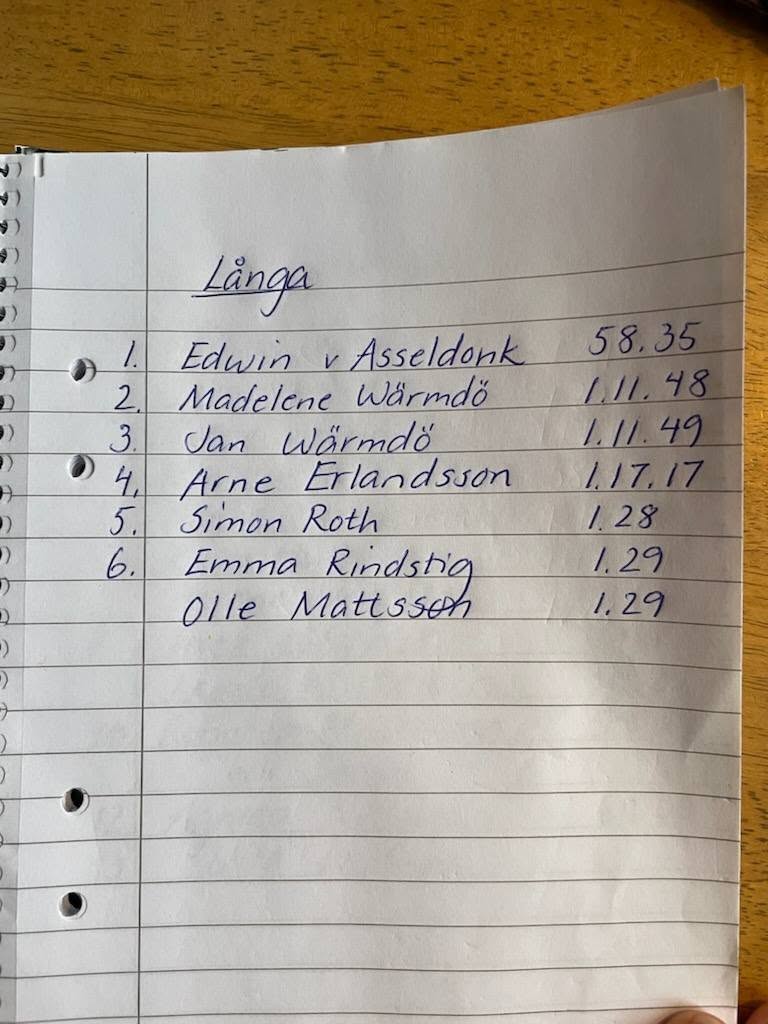 Långa
1. Edwin v Asseldonk 58.35
2. Madelene Wärmdö 1.11.48
3. Jan Wärmdö 1.11.49
4. Arne Erlandsson 1.17.17
5. Simon Roth 1.28
6. Emma Rindstig 1.29
Olle Mattsson 1.29